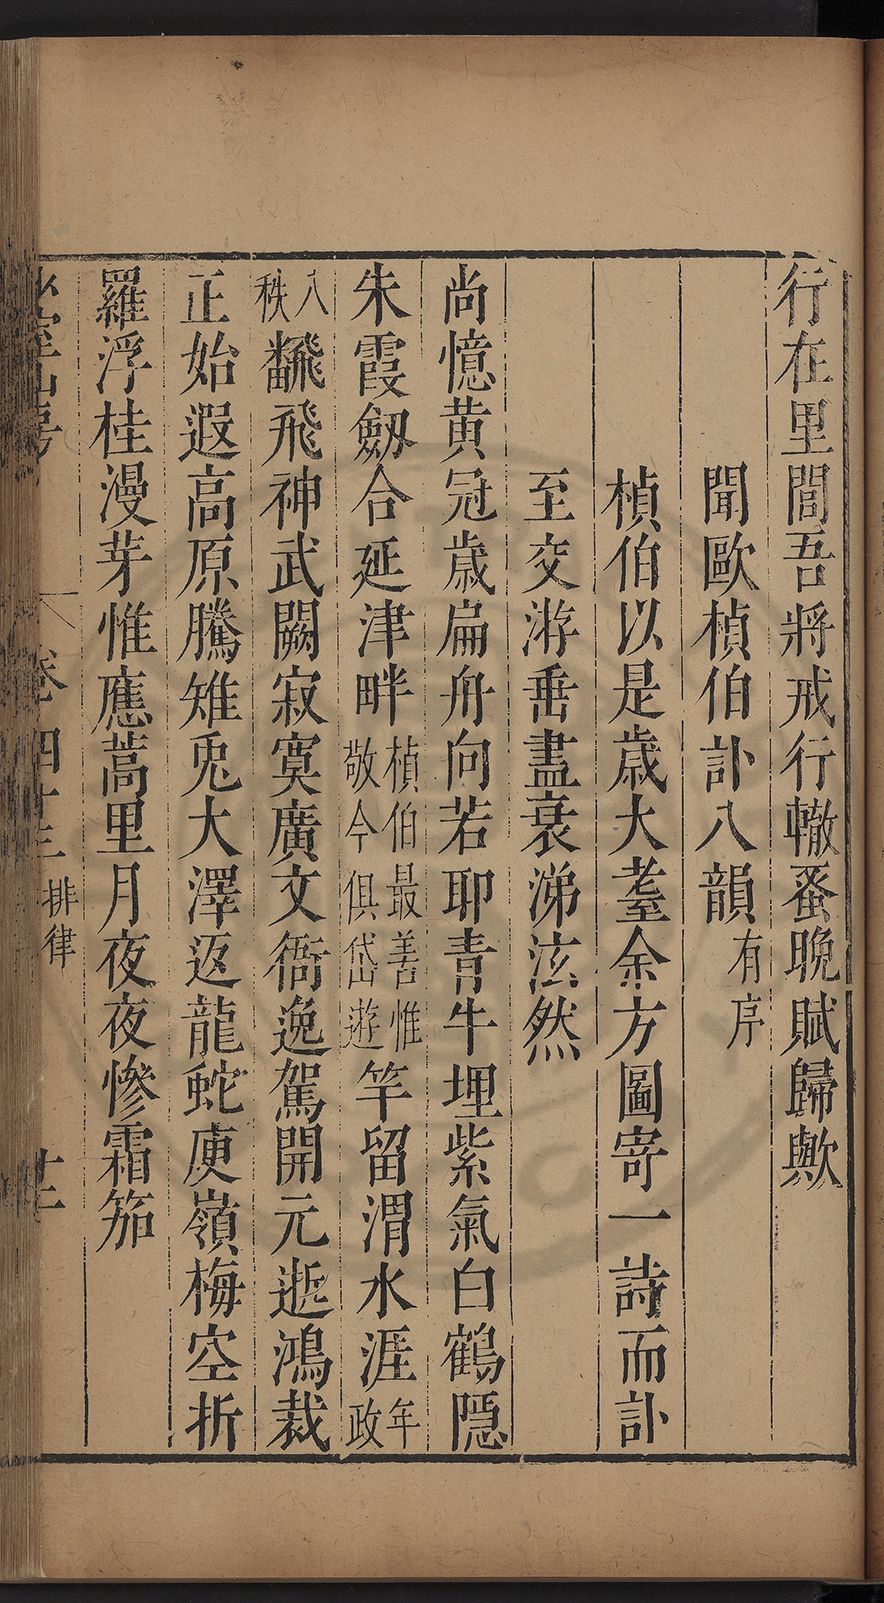 行在里閭吾將戒行轍蚤晚賦歸歟
聞歐楨伯訃八韻有序
楨伯以是歲大耋余方圖寄一詩而訃
至交游垂盡衰涕泫然
尚憶黃冠歲扁舟向若耶青牛埋紫氣白鶴隱
朱霞劔合延津畔楨伯最善惟敬今俱岱遊竿留渭水涯年政
八秩飜飛神武闕寂寞廣文衙逸駕開元逝鴻裁
正始遐高原騰雉兎大澤返龍蛇庾嶺梅空折
羅浮桂漫芽惟應蒿里月夜夜慘霜笳
山房 卷四十三 排律 十二